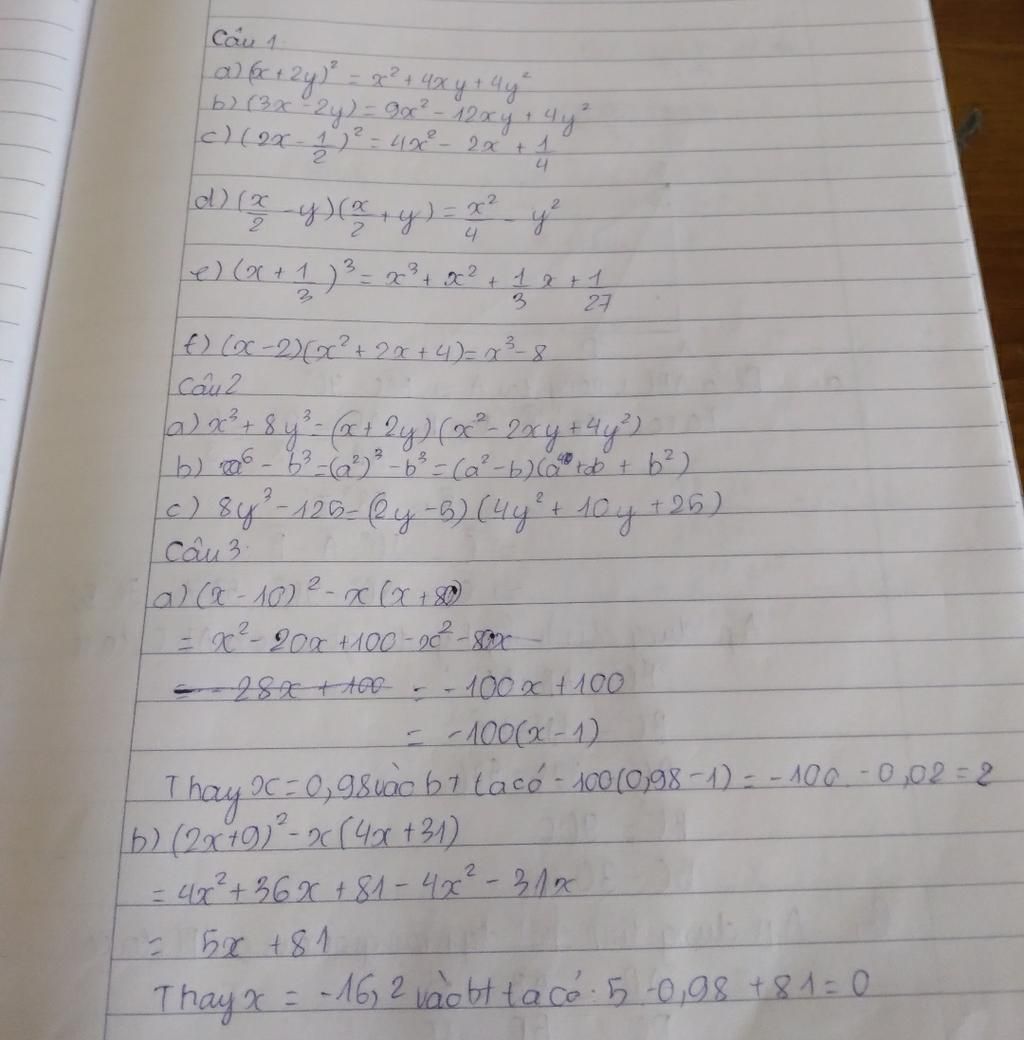 Câu 1
a) (x + 2y)² = x² + 4xy + 4y²
b) (3x - 2y) = 9x² - 12xy + 4y²
c) (2x - 1/2)² = 4x² - 2x + 1/4
d) (x/2 - y)(x/2 + y) = x²/4 - y²
e) (x + 1/3)³ = x³ + x² + 1/3 x + 1/27
f) (x - 2)(x² + 2x + 4) = x³ - 8
Câu 2
a) x³ + 8y³ = (x + 2y)(x² - 2xy + 4y²)
b) a⁶ - b³ = (a²)³ - b³ = (a² - b)(a⁴ + b + b²)
c) 8y³ - 125 = (2y - 5)(4y² + 10y + 25)
Câu 3
a) (x - 10)² - x(x + 80)
= x² - 20x + 100 - x² - 80x
= - 28x + 100 = -100x + 100
= -100(x - 1)
Thay x = 0,98 vào bt ta có -100(0,98 - 1) = -100 . -0,02 = 2
b) (2x + 9)² - x(4x + 31)
= 4x² + 36x + 81 - 4x² - 31x
= 5x + 81
Thay x = -16,2 vào bt ta có: 5 . -0,98 + 81 = 0